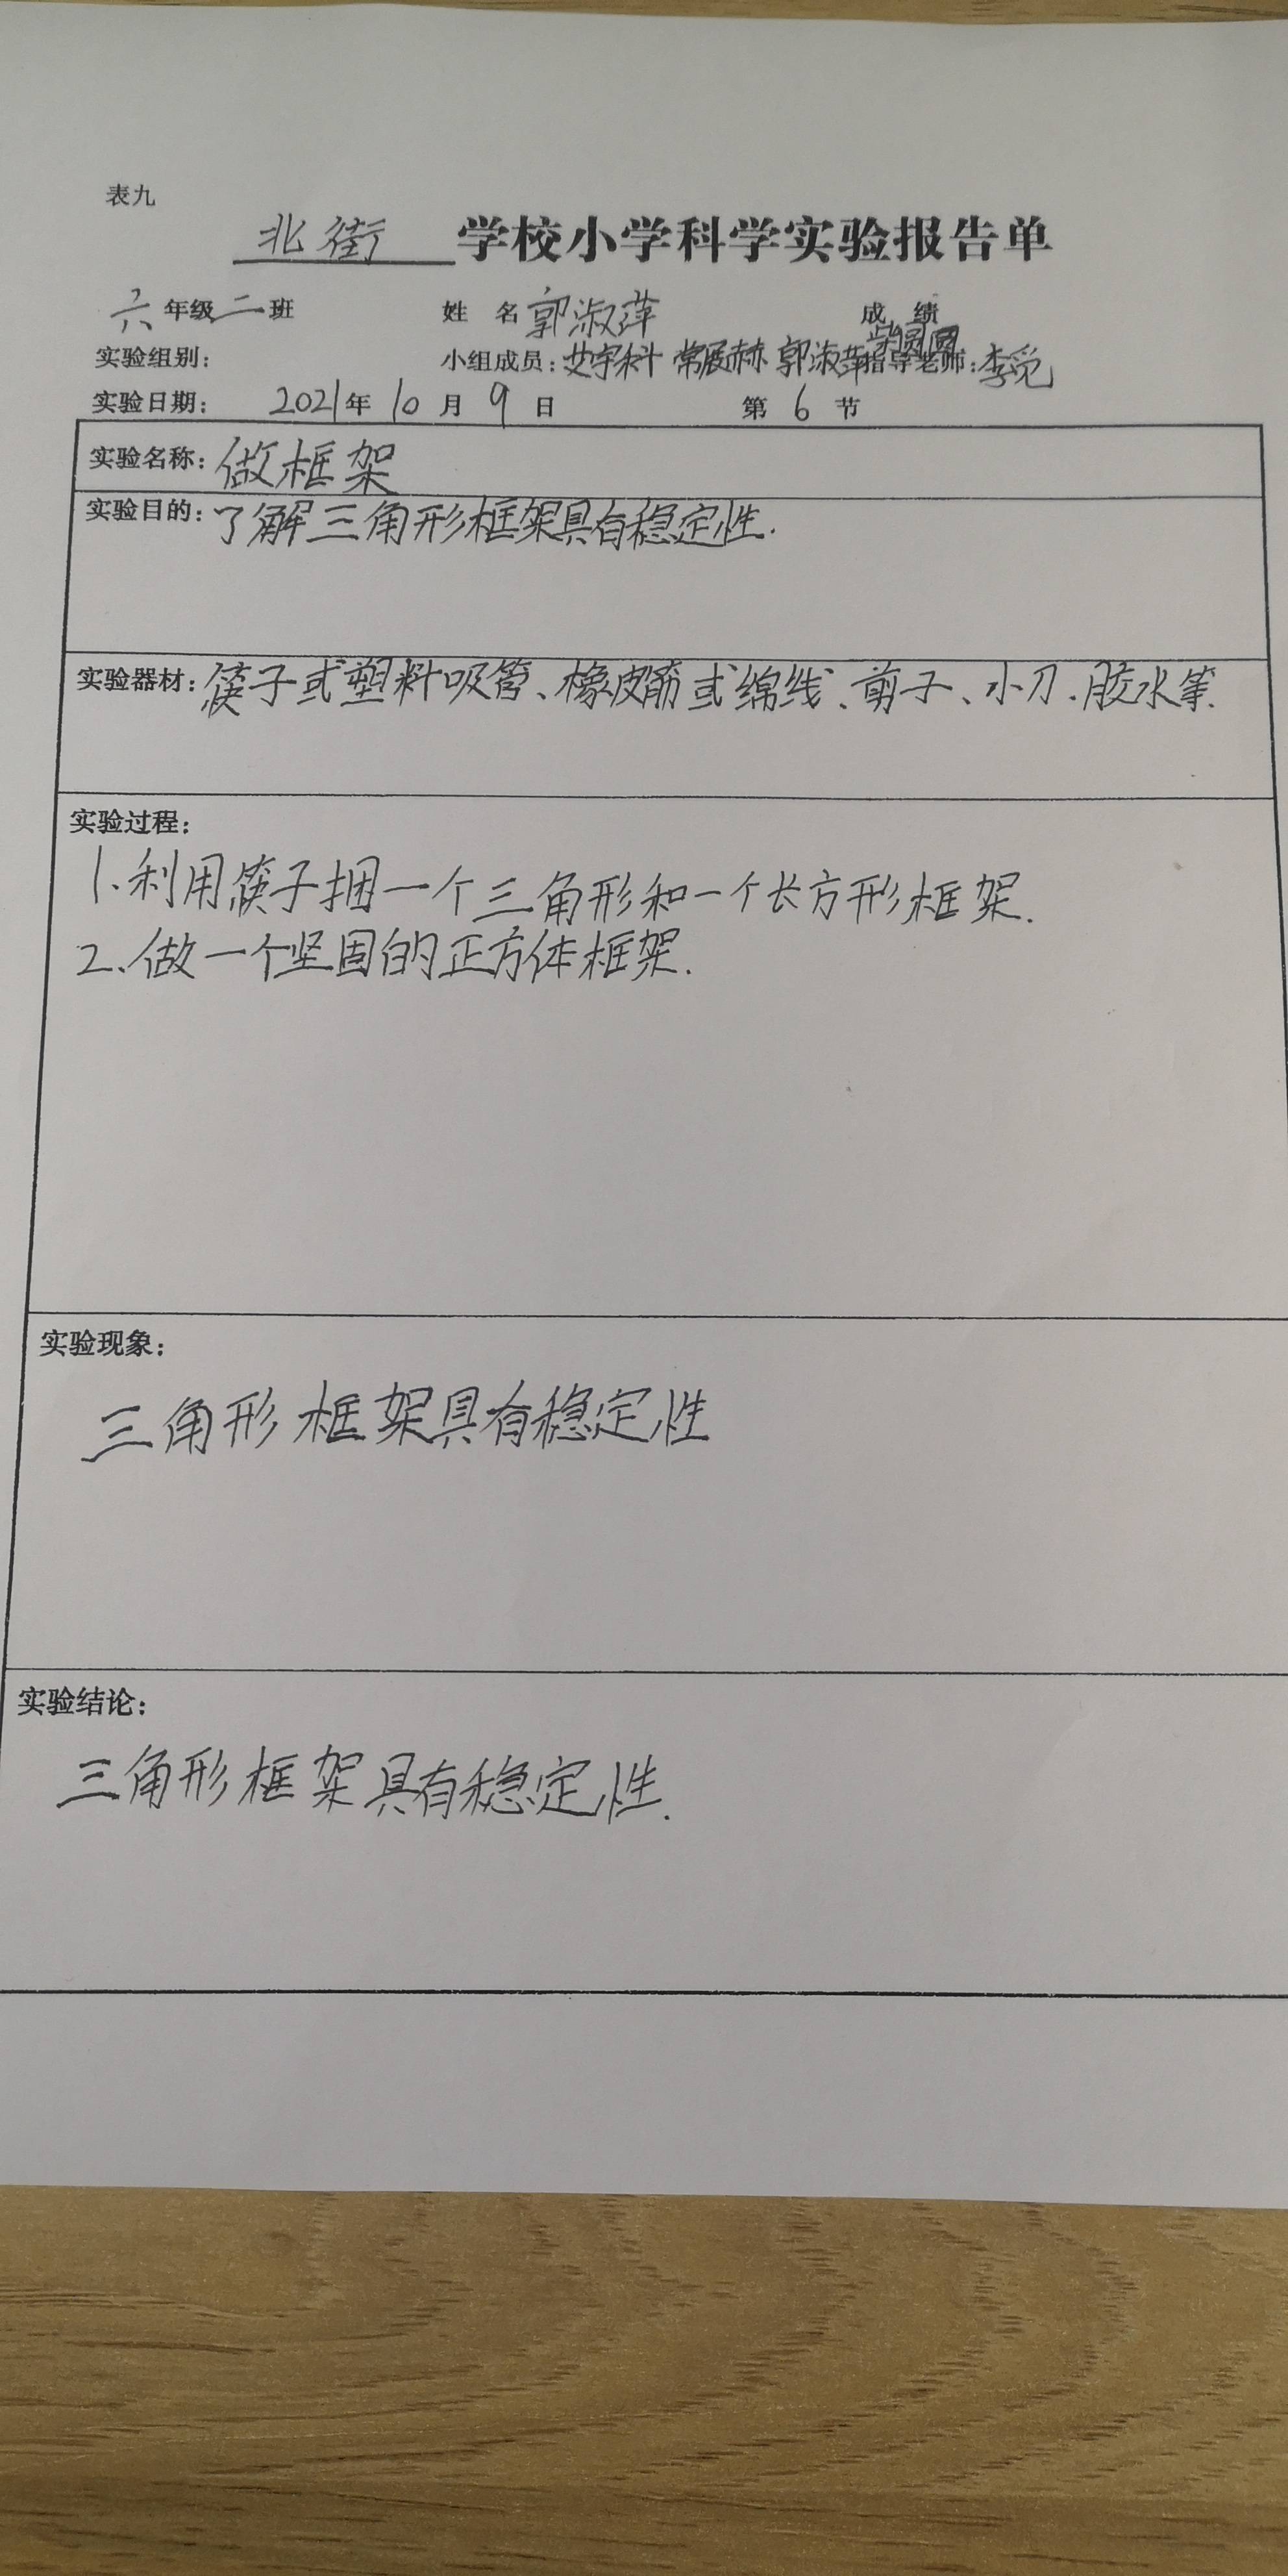 表九
北街 学校小学科学实验报告单
六年级二班 姓 名 郭淑萍 成 绩
实验组别: 小组成员: 艾宇科 常展赫 郭淑萍 柴圆圆 指导老师: 李觅
实验日期: 2021年10月9日 第6节
实验名称: 做框架
实验目的: 了解三角形框架具有稳定性.
实验器材: 筷子或塑料吸管、橡皮筋或绵线、剪子、小刀、胶水等.
实验过程:
1、利用筷子捆一个三角形和一个长方形框架.
2、做一个坚固的正方体框架.
实验现象:
三角形框架具有稳定性
实验结论:
三角形框架具有稳定性.